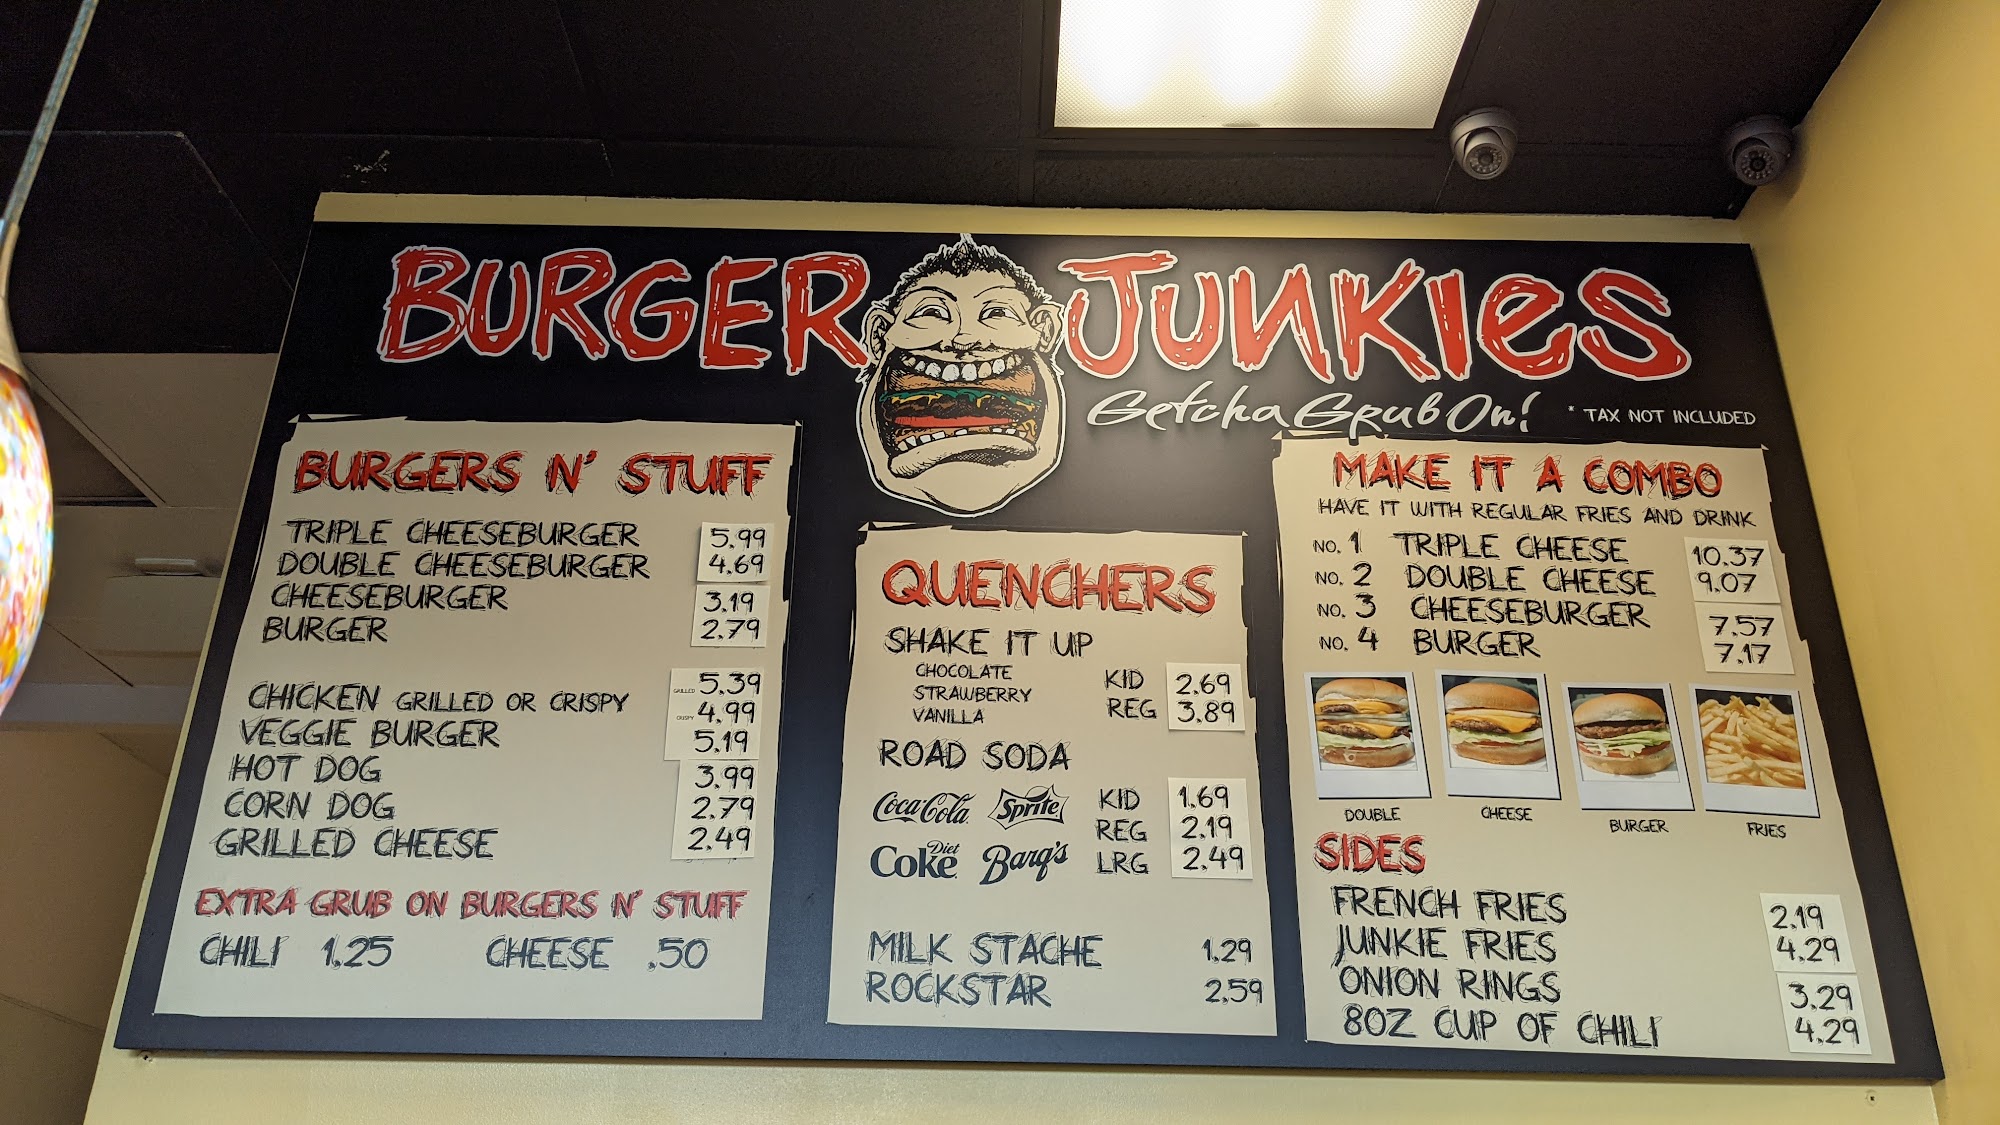 BURGER JUNKIES
Getcha Grub On!
* TAX NOT INCLUDED
BURGERS N' STUFF
TRIPLE CHEESEBURGER 5.99
DOUBLE CHEESEBURGER 4.69
CHEESEBURGER 3.19
BURGER 2.79
CHICKEN GRILLED OR CRISPY GRILLED 5.39
CRISPY 4.99
VEGGIE BURGER 5.19
HOT DOG 3.99
CORN DOG 2.79
GRILLED CHEESE 2.49
EXTRA GRUB ON BURGERS N' STUFF
CHILI 1.25 CHEESE .50
QUENCHERS
SHAKE IT UP
CHOCOLATE KID 2.69
STRAWBERRY
VANILLA REG 3.89
ROAD SODA
Coca-Cola Sprite KID 1.69
REG 2.19
Diet Coke Barq's LRG 2.49
MILK STACHE 1.29
ROCKSTAR 2.59
MAKE IT A COMBO
HAVE IT WITH REGULAR FRIES AND DRINK
NO. 1 TRIPLE CHEESE 10.37
NO. 2 DOUBLE CHEESE 9.07
NO. 3 CHEESEBURGER 7.57
NO. 4 BURGER 7.17
DOUBLE CHEESE BURGER FRIES
SIDES
FRENCH FRIES 2.19
JUNKIE FRIES 4.29
ONION RINGS 3.29
8OZ CUP OF CHILI 4.29